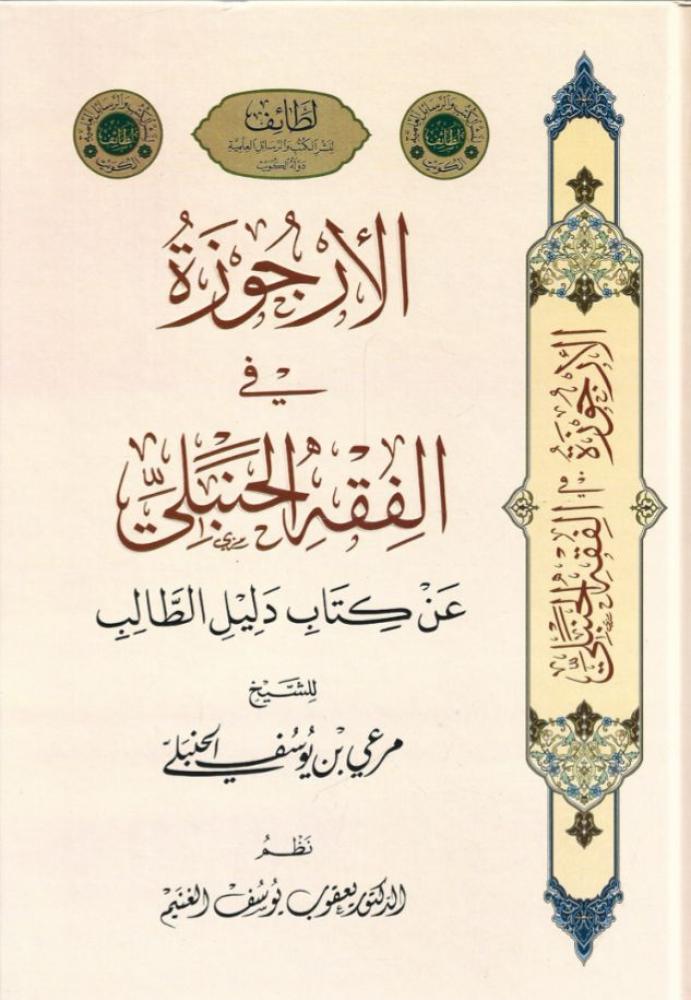 لطائف
لنشر الكتب والرسائل العلمية
دولة الكويت
لنشر الكتب والرسائل العلمية
لطائف
الكويت
لنشر الكتب والرسائل العلمية
لطائف
الكويت
الأُرْجُوزَةُ
في
الفِقْهِ الحَنْبَلِيِّ
عَنْ كِتَابِ دَلِيْلِ الطَّالِبِ
للشَّيْخ
مرعي بن يُوسُف الحنبليّ
نَظْمُ
الدكتور يعقوب يُوسُف الغنيم
الأُرْجُوزَةُ في الفِقْهِ الحَنْبَلِيِّ